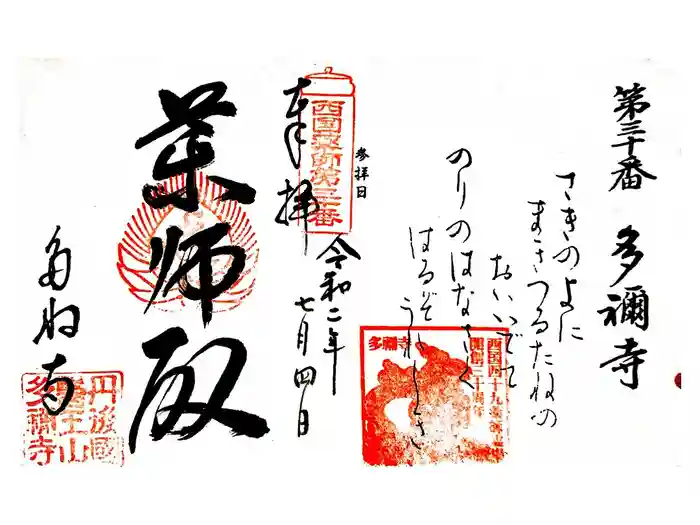 第三十番 多禰寺
さきのよに
まきつるたねの
おいいでて
のりのはなさく
はるぞうれしき
参拝日
奉拝
西国薬師第三十番
令和二年
七月四日
薬師殿
多祢寺
多禰寺
西国四十九薬師霊場
開創三十周年
丹後國
醫王山
多禰寺